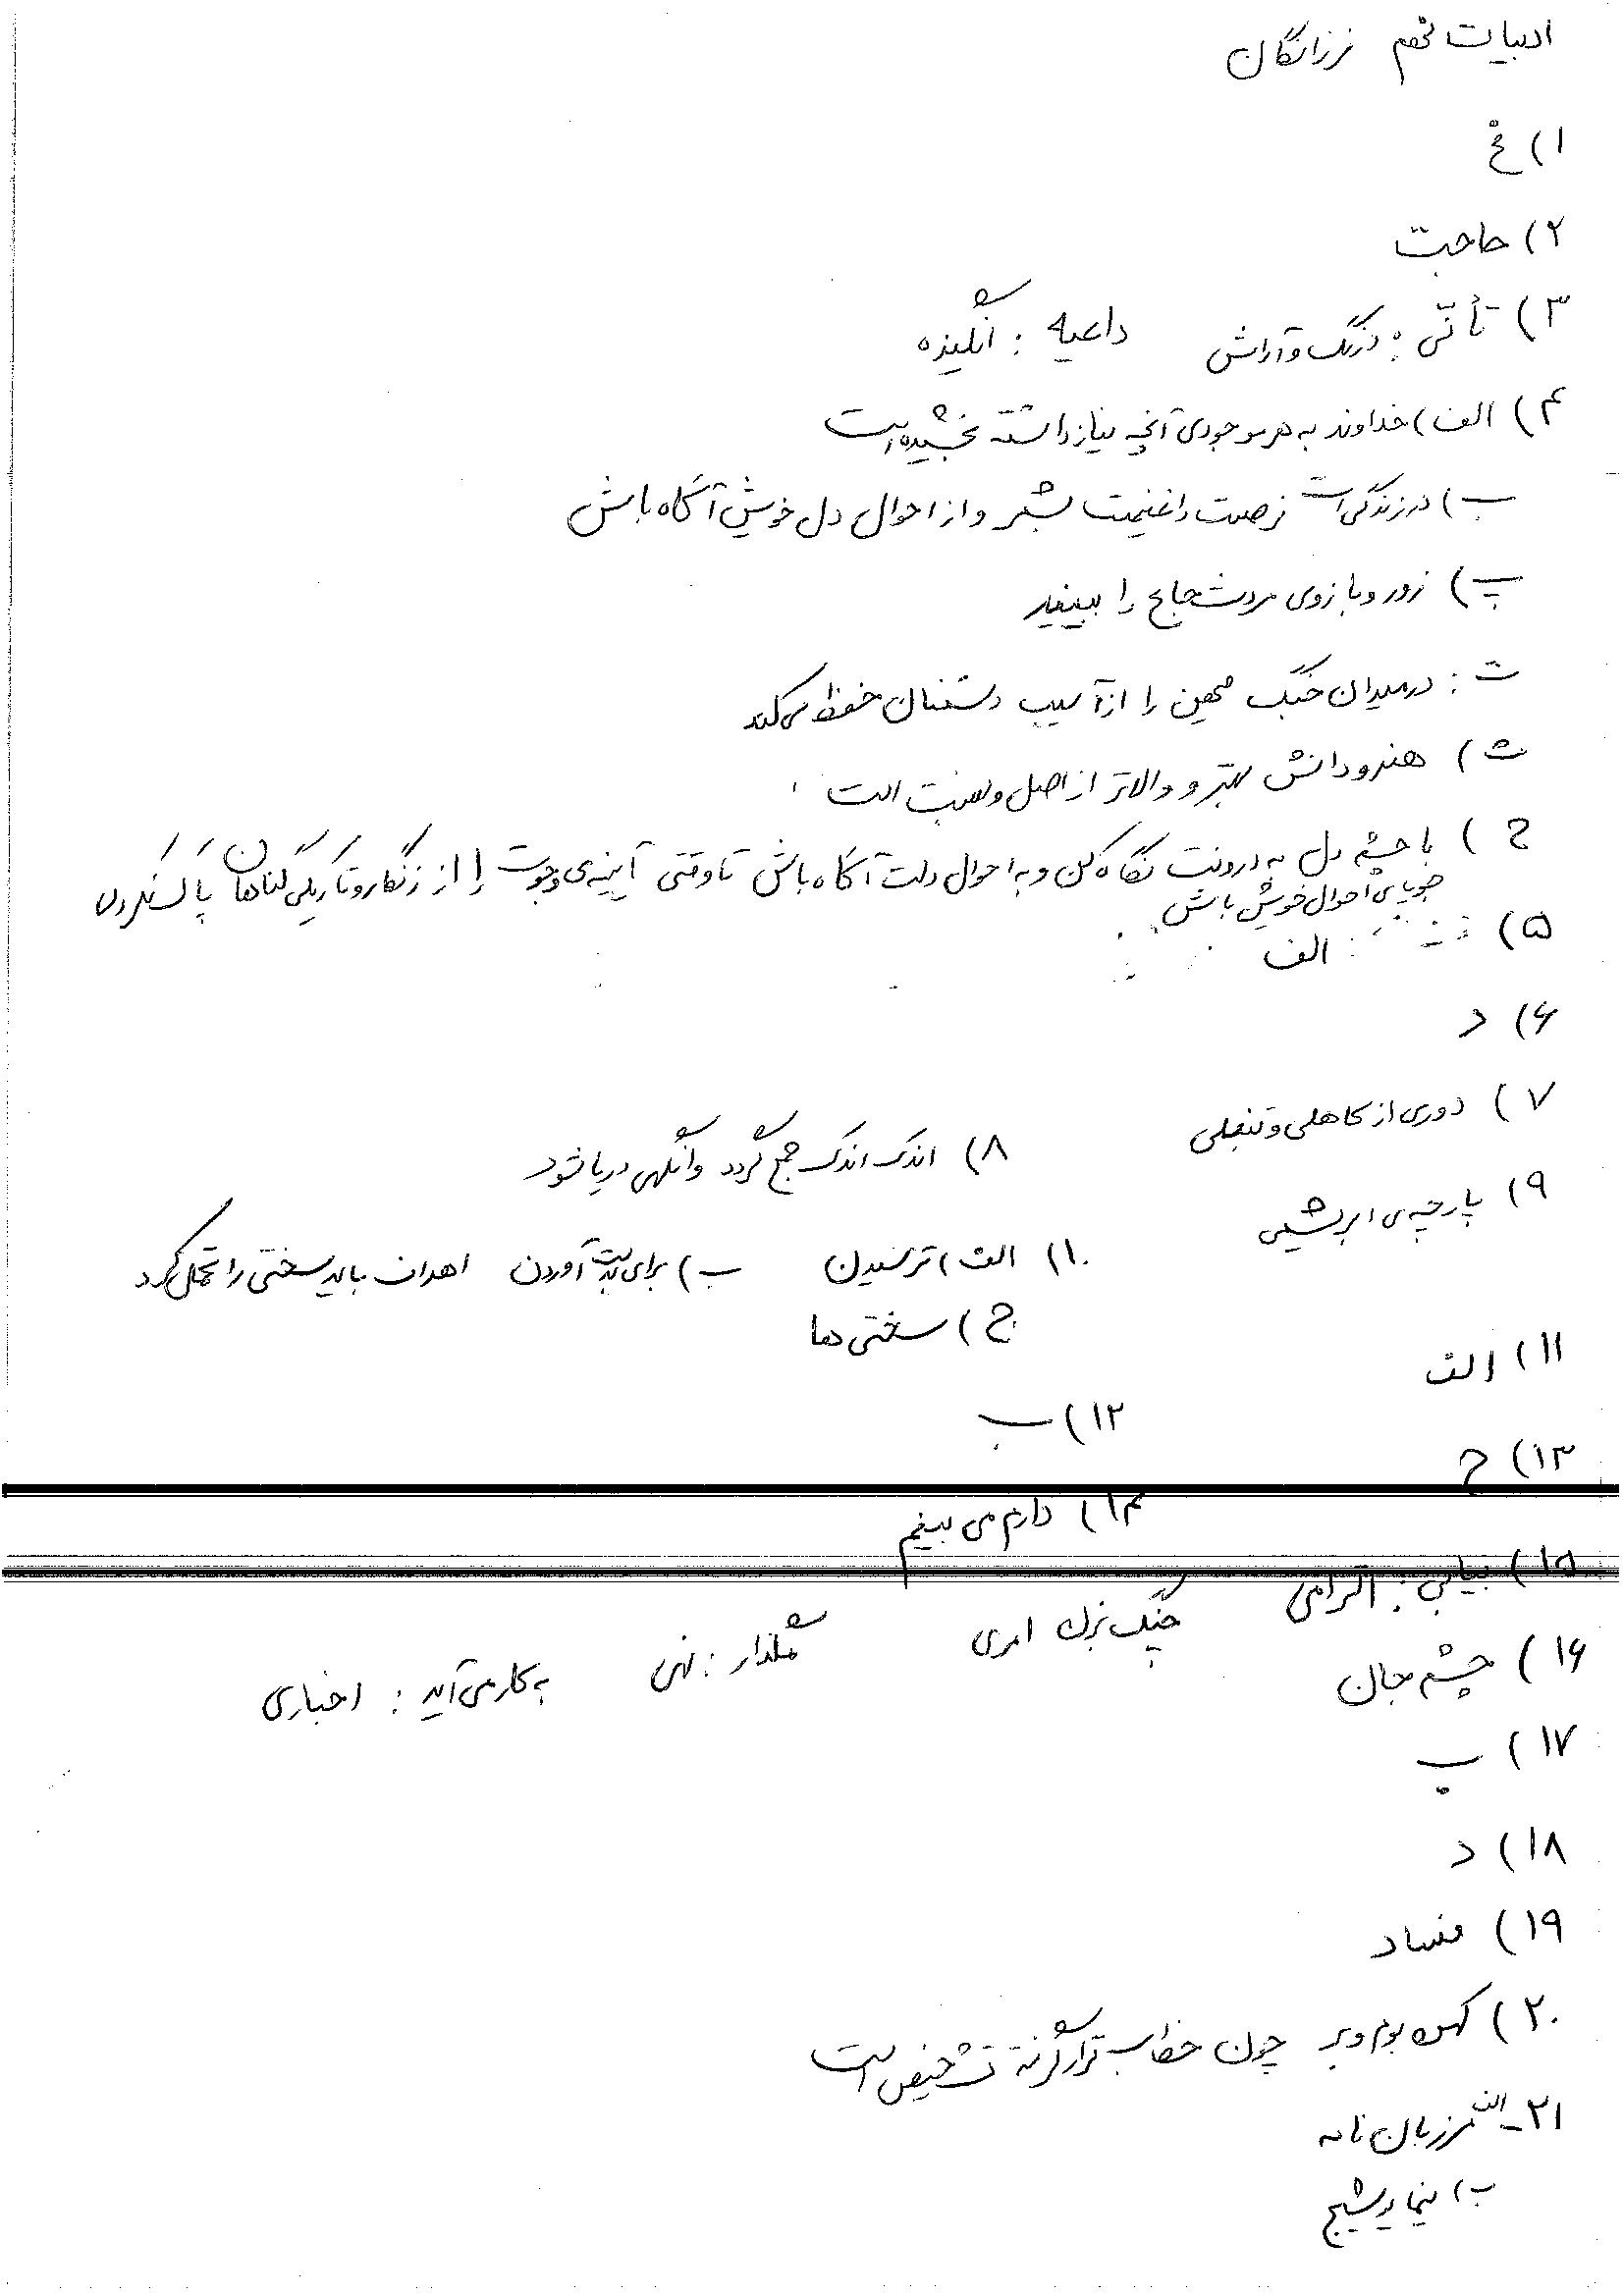 ادبیات نهم فرزانگان
۱) غ
۲) حاجت
۳) تأنّی : درنگ و آرامش داعیه : انگیزه
۴) الف) خداوند به هر موجودی آنچه نیاز داشته بخشیده است
ب) در زندگی ات فرصت را غنیمت بشمر و از احوال دل خویش آگاه باش
پ) زور و بازوی مرد شجاع را ببینید
ت : در میدان جنگ میهن را از آسیب دشمنان حفظ می کند
ث) هنر و دانش بهتر و والاتر از اصل و نسب است
ج) با چشم دل به درونت نگاه کن و به احوال دلت آگاه باش تا وقتی آیینه ی وجودت را از زنگار و تاریکی گناهان پاک نکردی
جویای احوال خویش باش
۵) الف
۶) د
۷) دوری از کاهلی و تنبلی
۸) اندک اندک جمع گردد وانگهی دریا شود
۹) پارچه ی ابریشمی
۱۰) الف) ترسیدن ب) برای بدست آوردن اهداف باید سختی را تحمل کرد
ج) سختی ها
۱۱) الف
۱۲) ب
۱۳) ج
۱۴) دارم می بینم
۱۵) بیانی : التزامی
۱۶) چشم جان جنگ نرم امری مگذار : نهی به کار می آید : اخباری
۱۷) پ
۱۸) د
۱۹) فساد
۲۰) کهن بوم و بر چون خطاب قرار گرفته تشخیص است
۲۱- الف مرزبان نامه
ب) نیما یوشیج